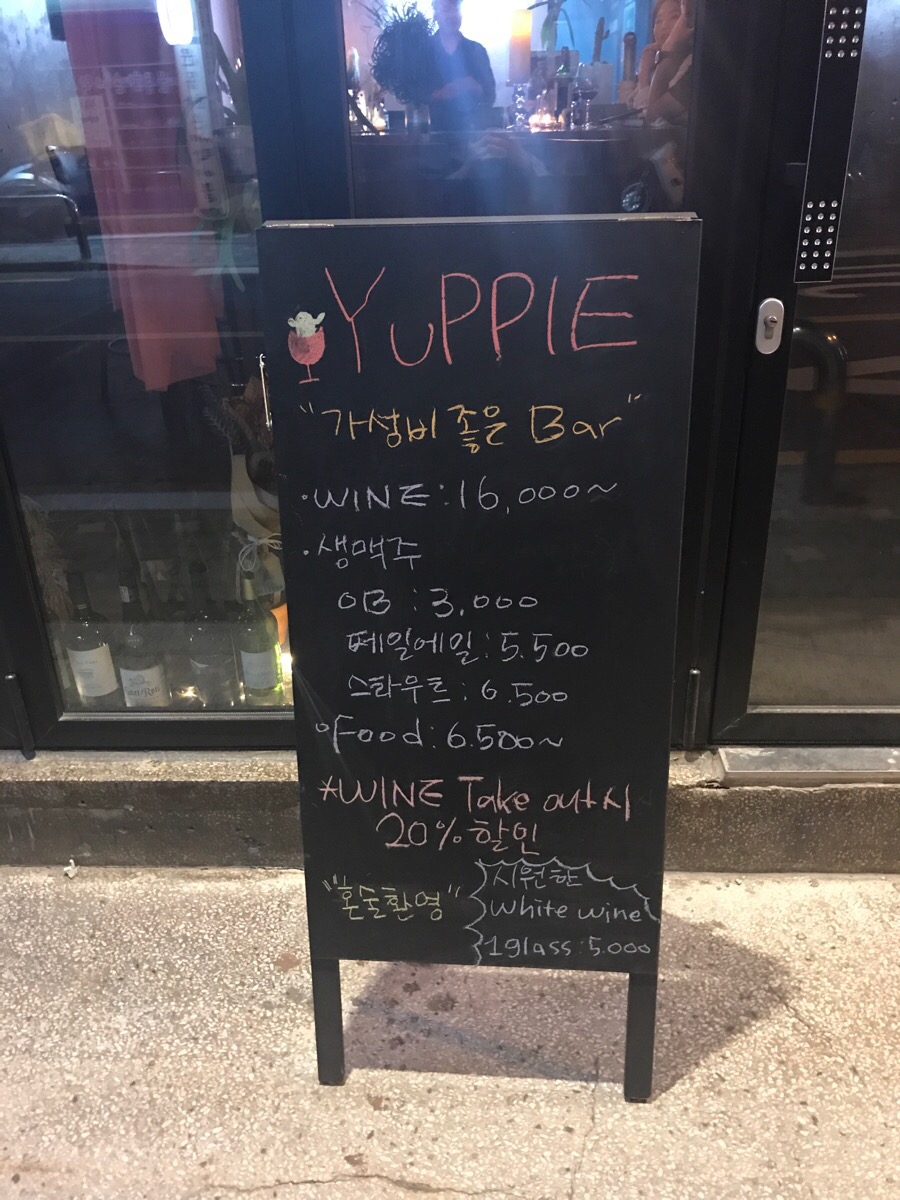 YUPPIE
"가성비 좋은 Bar"
·WINE : 16,000~
·생맥주
OB : 3,000
페일에일 : 5.500
스타우트 : 6.500
Food : 6.500~
*WINE Take out시
20% 할인
"혼술환영"
시원한
white wine
1glass : 5.000